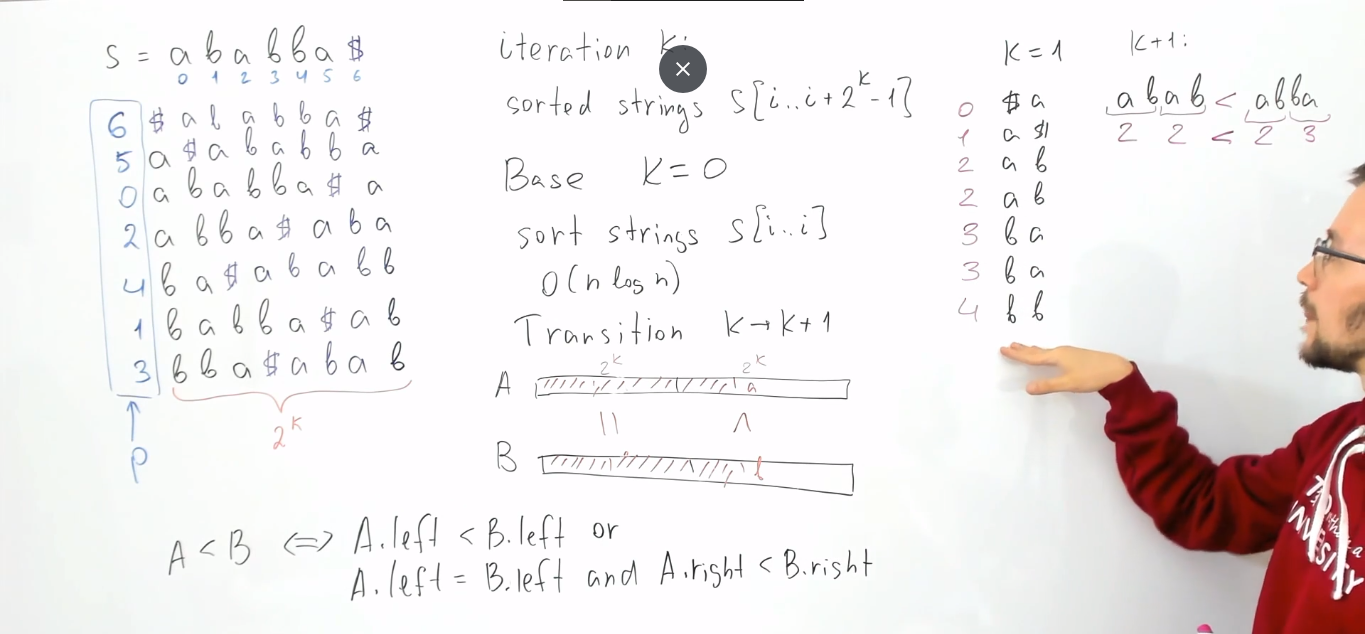 S = a b a b b a $
0 1 2 3 4 5 6
6 $ a b a b b a $
5 a $ a b a b b a
0 a b a b b a $ a
2 a b b a $ a b a
4 b a $ a b a b b
1 b a b b a $ a b
3 b b a $ a b a b
p
2^k
iteration k:
sorted strings S[i..i+2^k-1]
Base k=0
sort strings S[i..i]
O(n log n)
Transition k→k+1
2^k 2^k
A a
|| ∧
B b
A<B ⇔ A.left < B.left or
A.left = B.left and A.right < B.right
k=1
0 $ a
1 a $
2 a b
2 a b
3 b a
3 b a
4 b b
k+1:
a b a b < a b b a
2 2 < 2 3